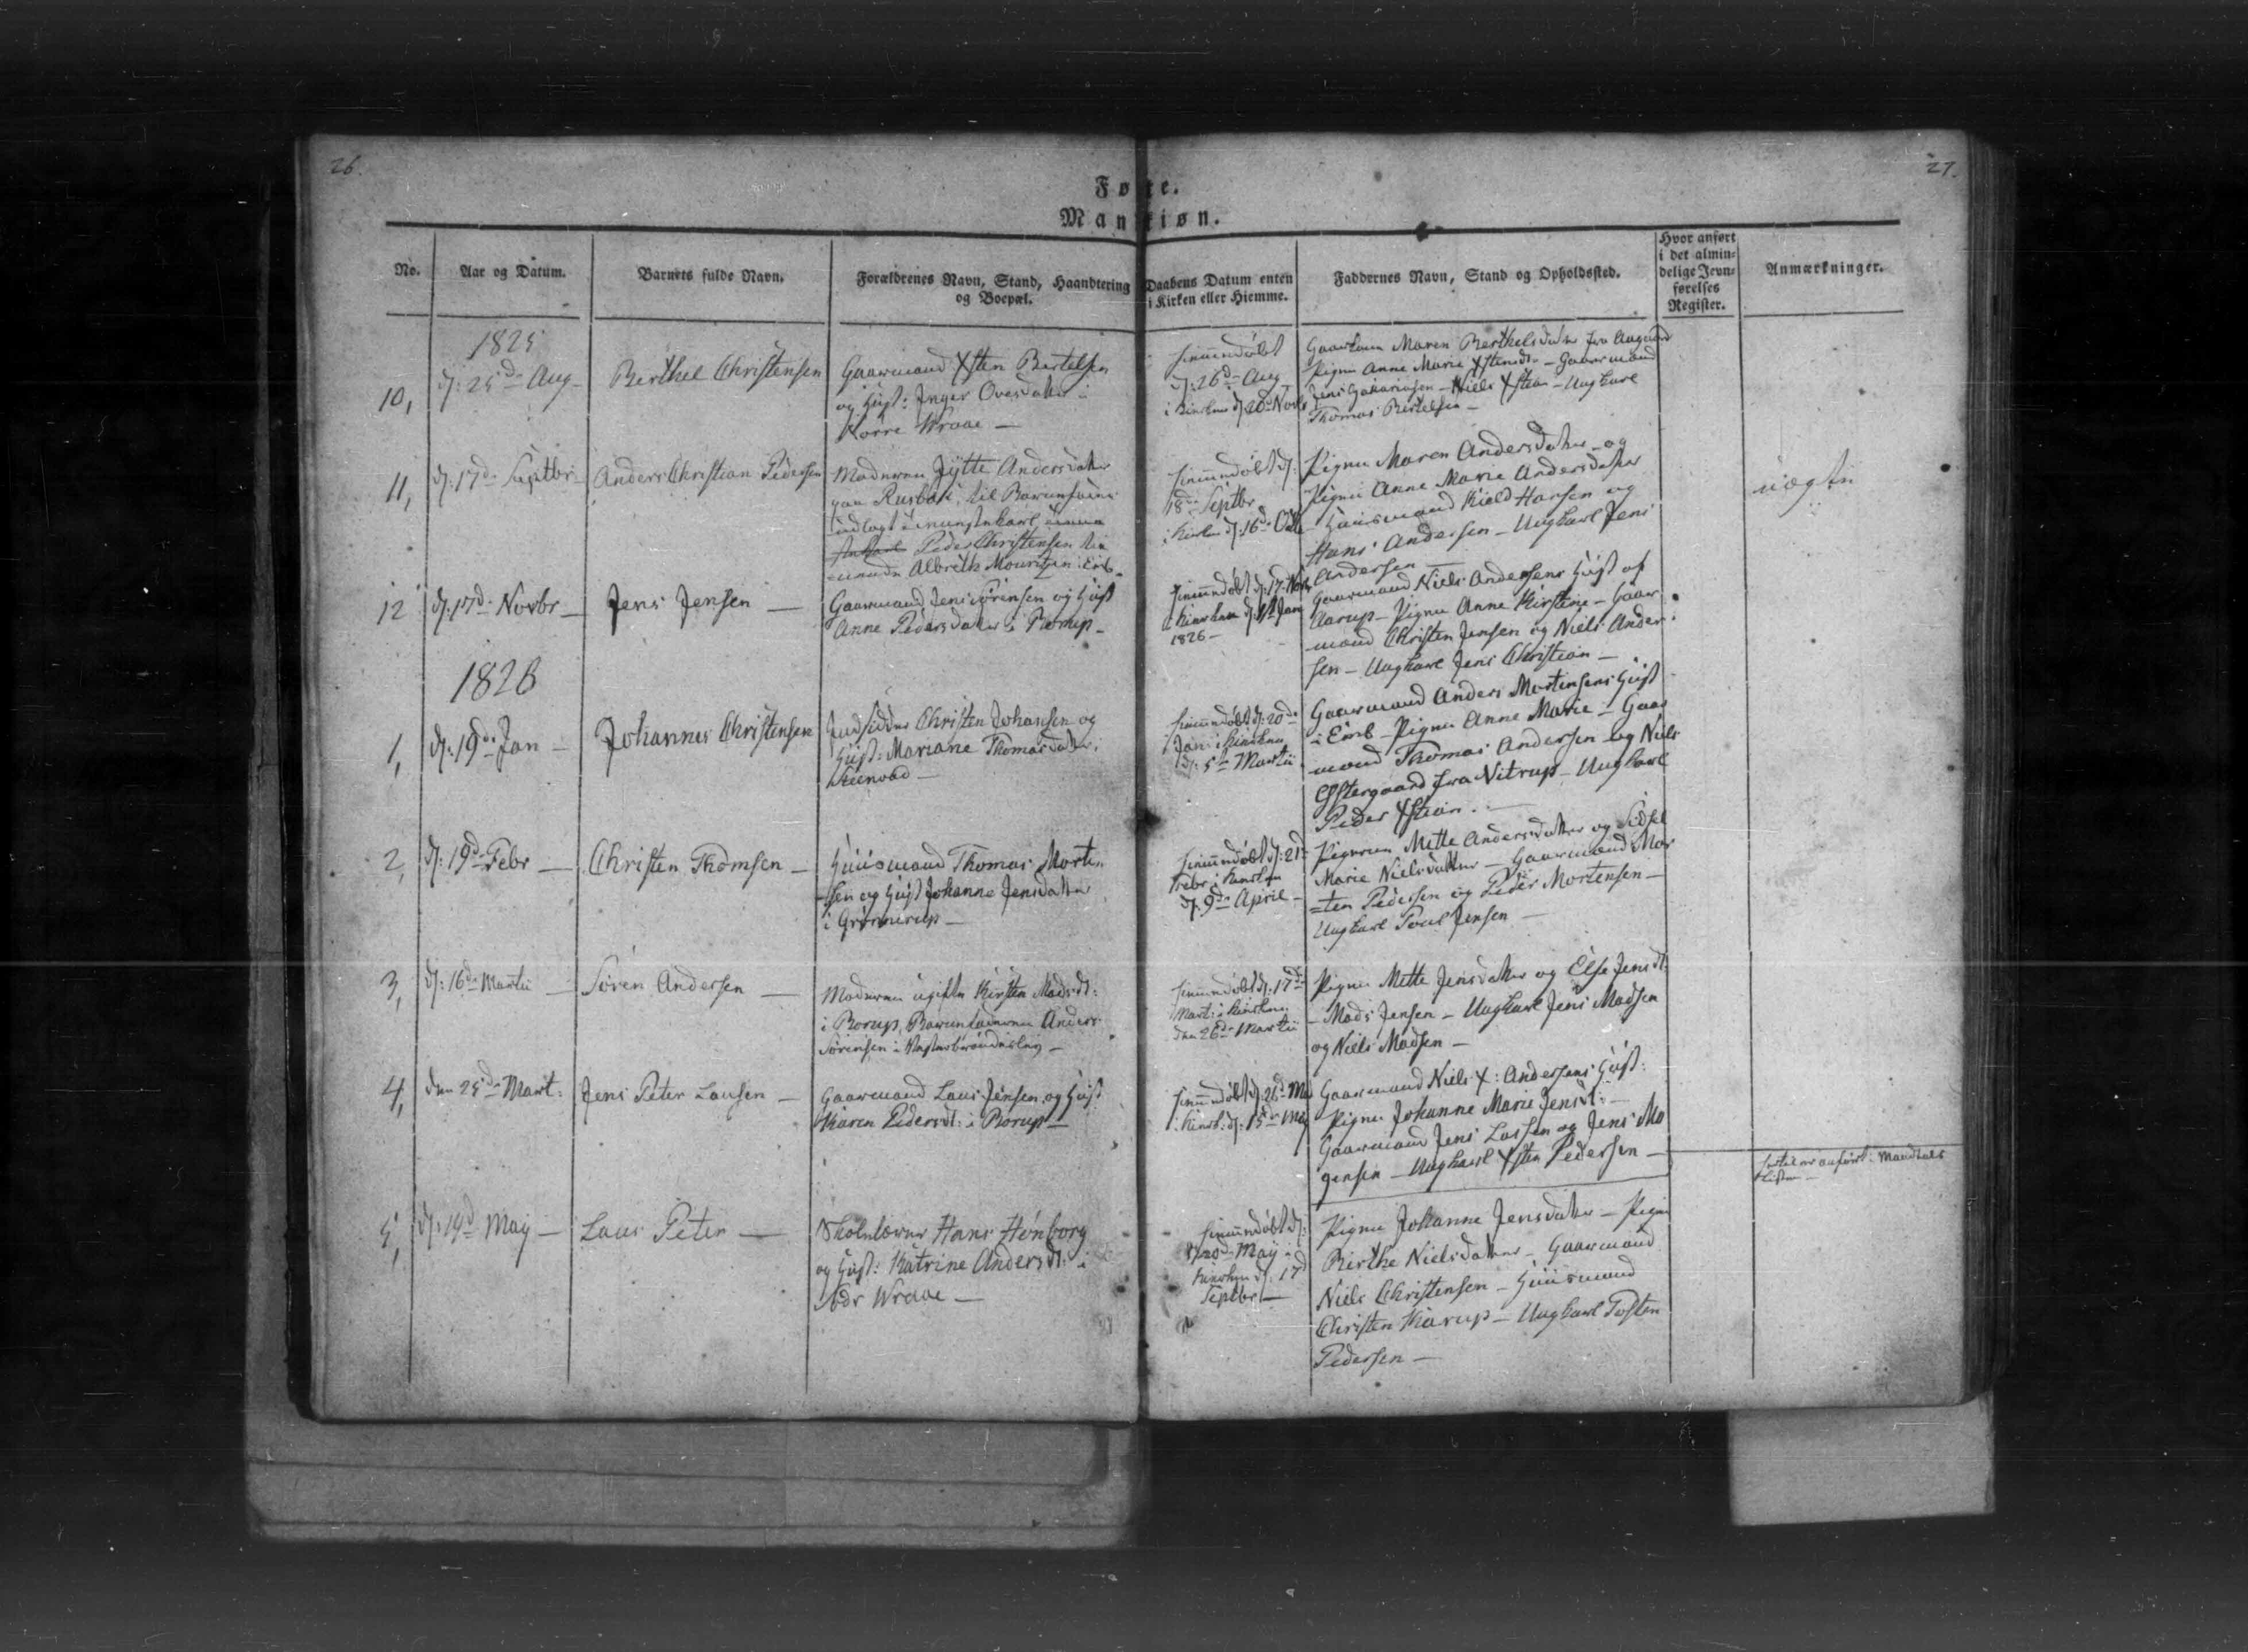 26.
27.
Føtte.
Mankiøn.
No.
Aar og Datum.
Barnets fulde Navn.
Forældrenes Navn, Stand, Haandtering
og Boepæl.
Daabens Datum enten
i Kirken eller Hiemme.
Faddernes Navn, Stand og Opholdssted.
Hvor anført
i det almin-
delige Jevn-
førelses
Register.
Anmærkninger.
1825
10,
d: 25de Aug
Berthel Christensen
Gaardmand Xsten Bertelsen
og Hust: Inger Ovesdatter i
Nørre Wraae —
hiemmedøbt
d: 26de Aug
i Kirken d: 20de Novb
Gaardkone Maren Berthelsdatter fra
Pigen Anne Marie Xstensdr — Gaardmand
Jens — Niels Xstian — Ungkarl
Thomas Bertelsen —
11,
d: 17de Septbr
Anders Christian Pedersen
Moderen Jytte Andersdatter
paa til Barnefader
udlagt
Peder Christensen
Albreth Mouritzen i Emb
hiemmedøbt d:
18de Septbr
i Kirken d: 16de Octb
Pigen Maren Andersdatter og
Pigen Anne Marie Andersdatter
Huusmand Kield Hansen og
Hans Andersen — Ungkarl Jens
Andersen —
uægte
12
d: 17de Novbr —
Jens Jensen —
Gaardmand Jens Sørensen og Hust
Anne Pedersdatter i Borup —
hiemmedøbt d: 17 Novb
i Kirken d: 1 Jan
1826 —
Gaardmand Niels Andersens Hust af
Aarup — Pigen Anne Kirstine — Gaar
mand Christen Jensen og Niels Ander
sen — Ungkarl Jens Christian —
1826
1,
d: 19de Jan —
Johannes Christensen
Indsidder Christen Johansen og
Hust: Mariane Thomasdatter i
Steenvad —
hiemmedøbt d: 20de
Jan i Kirken
d: 5te Martii
Gaardmand Anders Mortensens Hust
i Emb — Pigen Anne Marie — Gaar
mand Thomas Andersen og Niels
Østergaard fra Vitrup — Ungkarl
Peder Xstian. —
2,
d: 19de Febr —
Christen Thomsen —
Huusmand Thomas Morten
-sen og Hust Johanne Jensdatter
i Grønnerup —
hiemmedøbt d: 21de
Febr i Kirken
d: 9de April —
Pigerne Mette Andersdatter og Sidsel
Marie Nielsdatter — Gaardmand Mor
=ten Pedersen og Peder Mortensen —
Ungkarl Poul Jensen —
3,
d: 16de Martii —
Søren Andersen —
Moderen ugifte Kirsten Madsdr:
i Borup, Barnefaderen Anders
Sørensen i Vesterbrønderslev —
hiemmedøbt d: 17de
Mart: i Kirken
den 26de Martii
Pigen Mette Jensdatter og Else Jensdr:
— Mads Jensen — Ungkarl Jens Madsen
og Niels Madsen —
4,
den 25de Mart:
Jens Peter Lausen —
Gaardmand Laus Jensen og Hust
Karen Pedersdr: i Borup —
hiemmedøbt d: 26de M
i Kirk: d: 15de May
Gaardmand Niels X: Andersens Hust:
Pigen Johanne Marie Jensdr: —
Gaardmand Jens Larsen og Jens Mo
gensen — Ungkarl Xsten Pedersen —
hertil er anført i Mandtals
Listen —
5,
d: 19d May —
Laus Peter —
Skolelærer Hans Hønborg
og Hust: Katrine Andersdr: i
Ndr Wraae —
hiemmedøbt d:
20de May i
Kirken d: 17d
Septbr —
Pigen Johanne Jensdatter — Pigen
Birthe Nielsdatter — Gaardmand
Niels Christensen — Huusmand
Christen Karup — Ungkarl Posten
Pedersen —